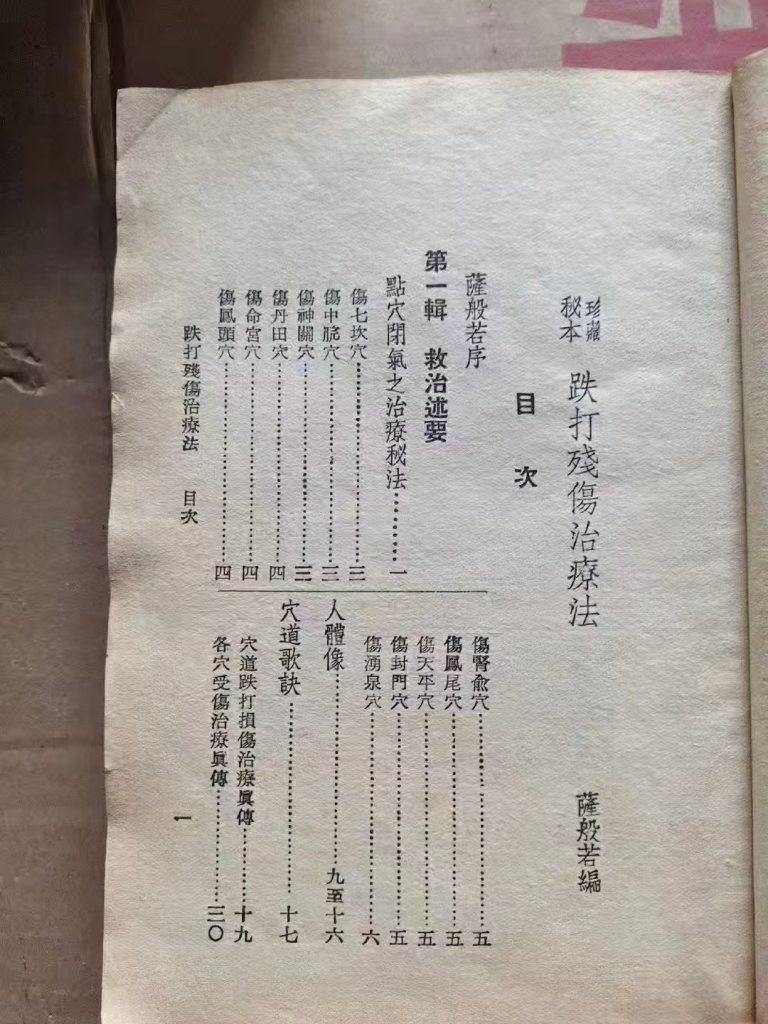 珍藏秘本 跌打殘傷治療法 薩般若編
目次
薩般若序
第一輯 救治述要
點穴閉氣之治療秘法………一
傷七坎穴………三
傷中脘穴………三
傷神闕穴………三
傷丹田穴………四
傷命宮穴………四
傷鳳頭穴………四
傷腎俞穴………五
傷鳳尾穴………五
傷天平穴………五
傷封門穴………五
傷湧泉穴………六
人體像………九至十六
穴道歌訣………十七
穴道跌打損傷治療眞傳………十九
各穴受傷治療眞傳………三〇
跌打殘傷治療法 目次 一